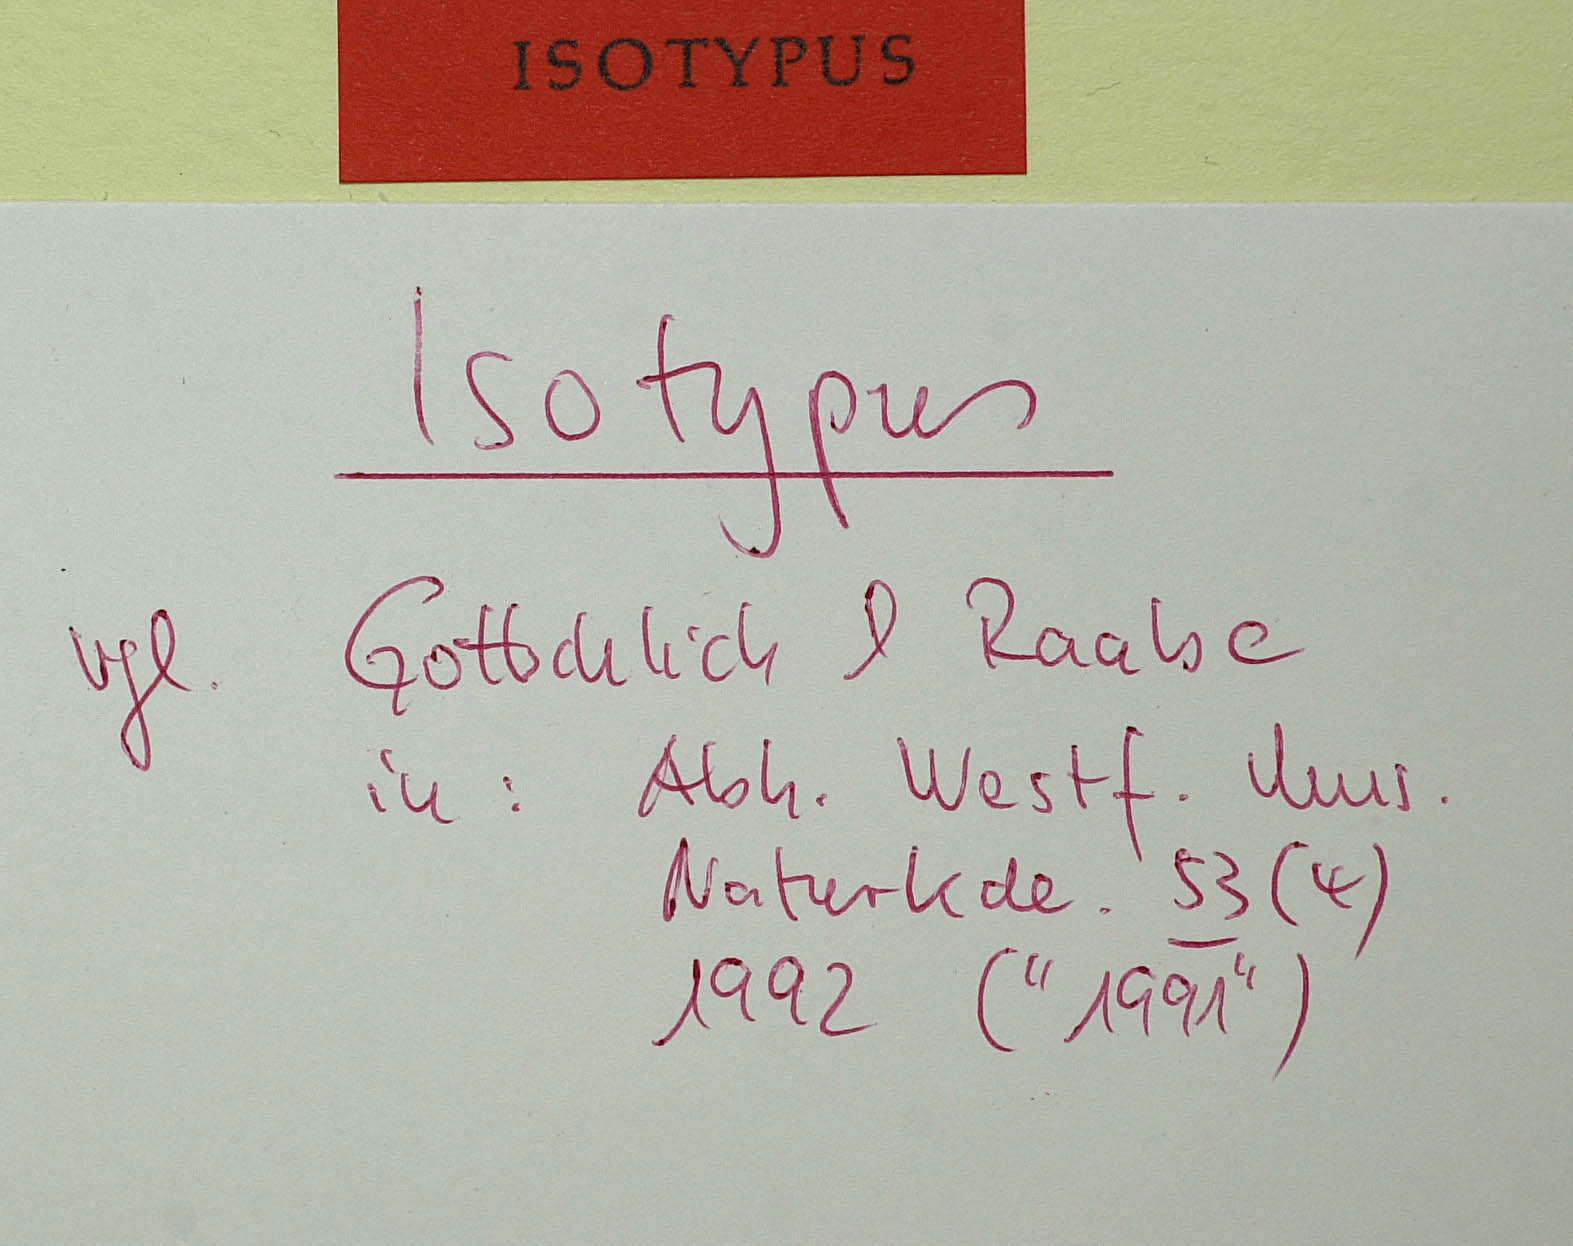 ISOTYPUS
Isotypus
vgl. Gottschlich & Raabe
in: Abh. Westf. Mus.
Naturkde. 53(4)
1992 ("1991")